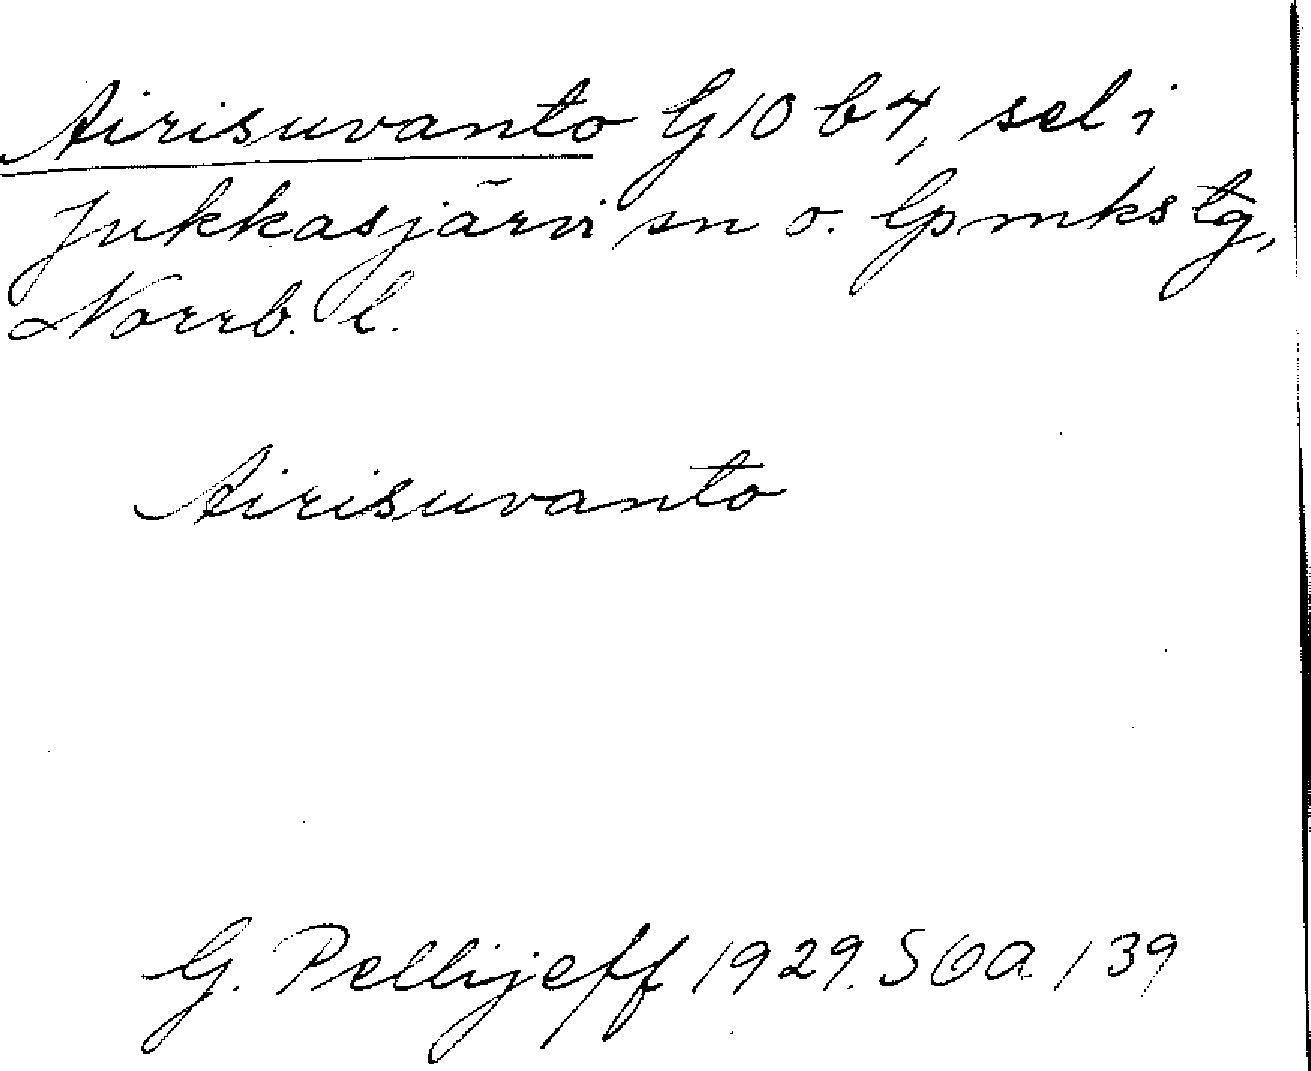 Airisuvanto G10 b4, sel i
Jukkasjärvi sn o. lpmkstg,
Norrb. l.
Airisuvanto
G. Pellijeff 1929. SOA 139